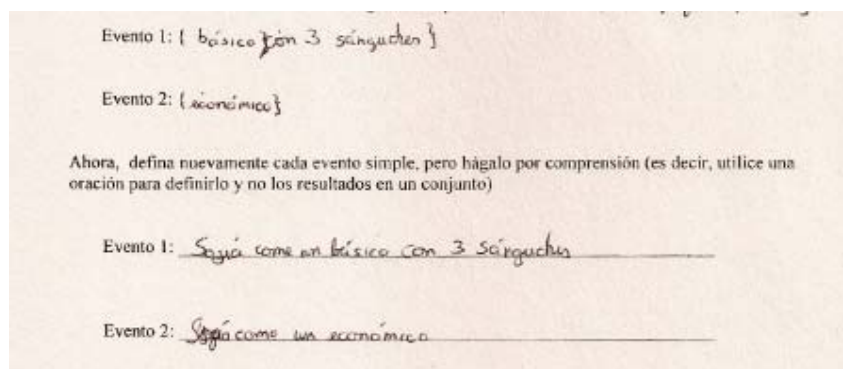 Evento 1: { básico con 3 sánguches }
Evento 2: { económico }
Ahora, defina nuevamente cada evento simple, pero hágalo por comprensión (es decir, utilice una
oración para definirlo y no los resultados en un conjunto)
Evento 1: come un básico con 3 sánguches
Evento 2: come un económico